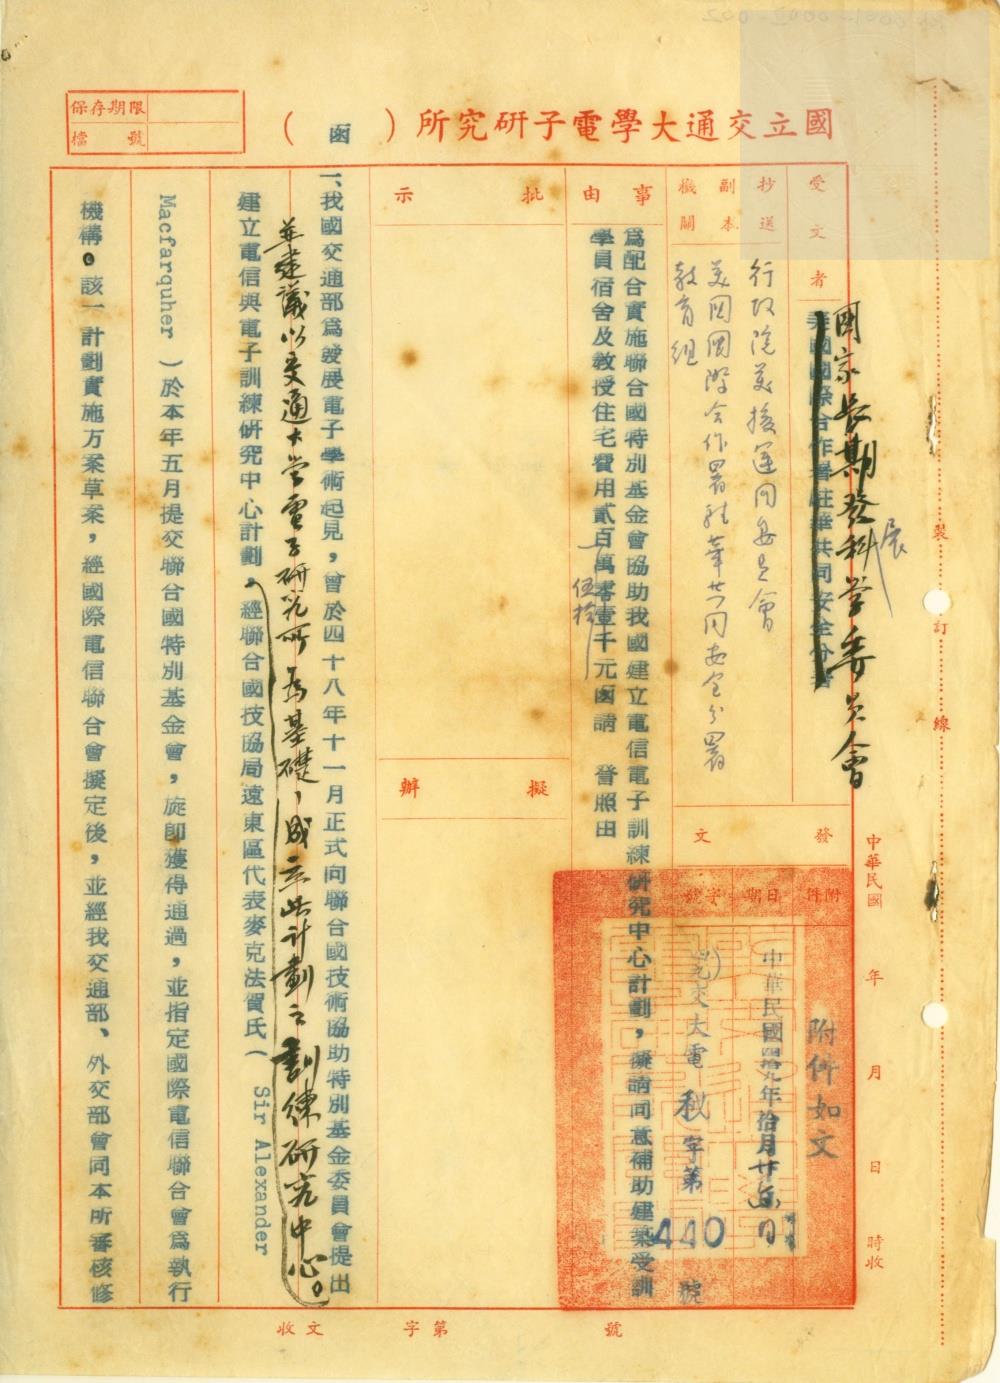 國立交通大學電子研究所(函)
保存期限
檔號
受文者
國家長期發展科學委員會
美國國際合作署駐華共同安全分署
抄送
副本
機關
行政院美援運用委員會
美國國際合作署駐華共同安全分署
教育組
事由
為配合實施聯合國特別基金會協助我國建立電信電子訓練研究中心計劃,擬請同意補助建築受訓
學員宿舍及教授住宅費用貳百萬零壹千元函請 詧照由
伍拾
發文
附件
日期
字號
附件如文
中華民國肆拾九年拾月廿五日
(49)交大電秘字第440號
批示
擬辦
一、我國交通部為發展電子學術起見,曾於四十八年十一月正式向聯合國技術協助特別基金委員會提出
並建議以交通大学電子研究所為基礎,成立此計劃之訓練研究中心。
建立電信與電子訓練研究中心計劃,經聯合國技協局遠東區代表麥克法賀氏(Sir Alexander
Macfarquher)於本年五月提交聯合國特別基金會,旋即獲得通過,並指定國際電信聯合會為執行
機構。該一計劃實施方案草案,經國際電信聯合會擬定後,並經我交通部、外交部會同本所審核修
裝訂線
中華民國 年 月 日 時收
收文 字第 號